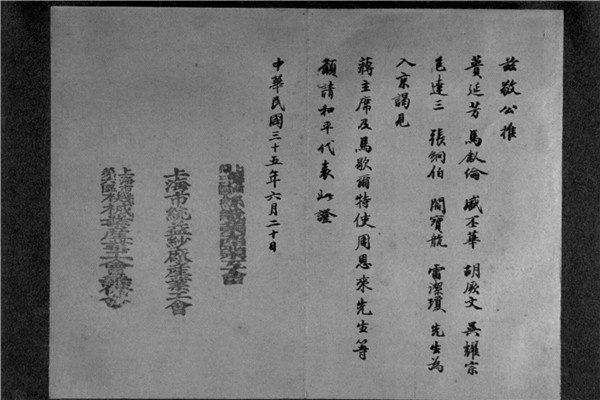 兹敬公推
蕢延芳 馬叙倫 盛丕華 胡厥文 吳耀宗
包達三 張絅伯 閻寶航 雷潔瓊 先生為
入京謁見
蔣主席及馬歇爾特使周恩來先生等
籲請和平代表此證
中華民國三十五年六月二十日
上海市統益紗廠產業工會
上海市
機械業產業工會